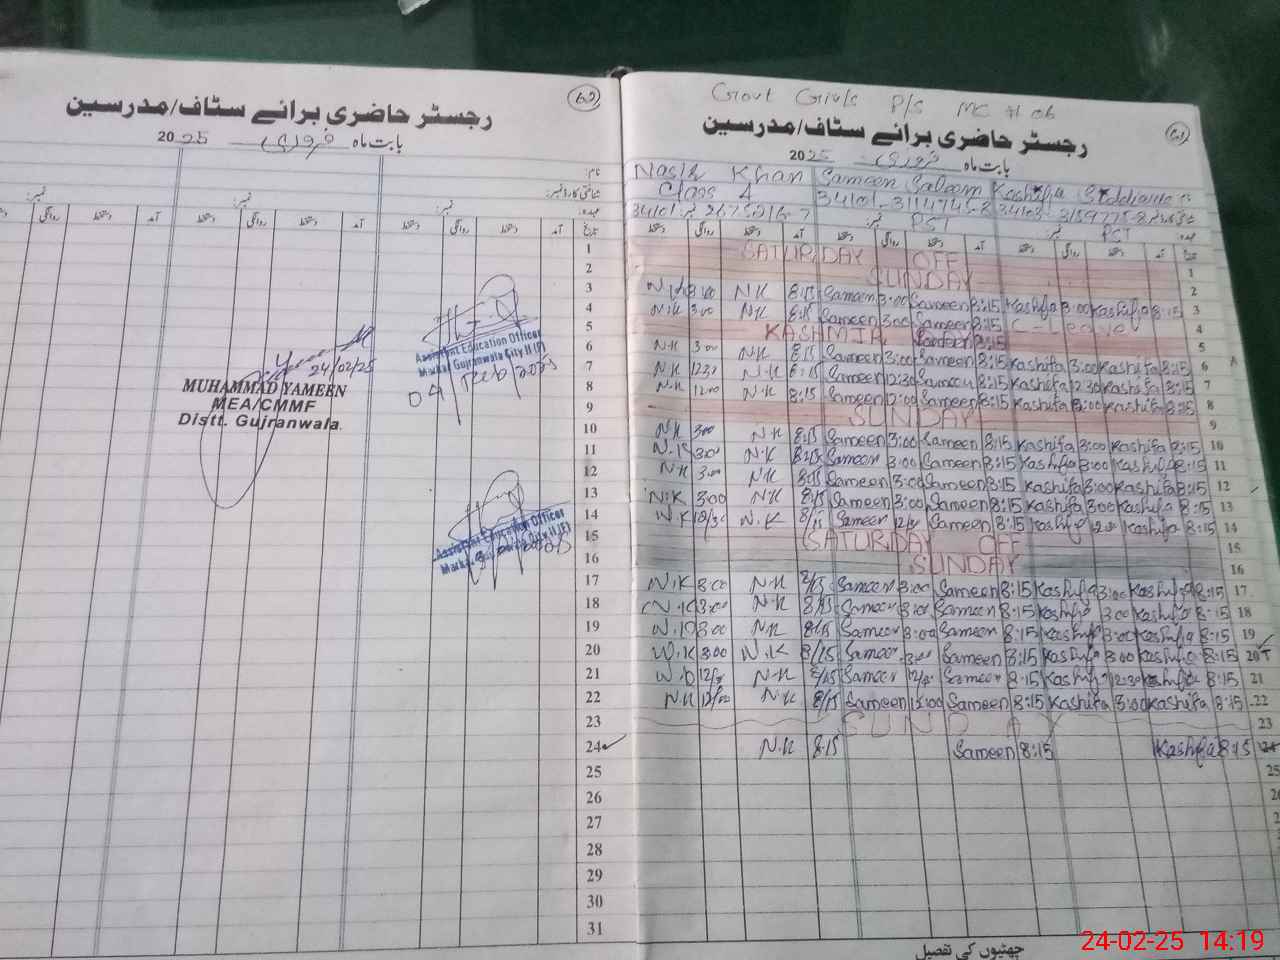 رجسٹر حاضری برائے سٹاف/مدرسین
بابت ماہ فروری 2025
نام:
شناختی کارڈ نمبر:
عہدہ: نمبر: نمبر: نمبر:
تاریخ آمد دستخط روانگی دستخط آمد دستخط روانگی دستخط آمد دستخط روانگی
1
2
3
4
5
6
7
8
9
10
11
12
13
14
15
16
17
18
19
20
21
22
23
24
25
26
27
28
29
30
31
Assistant Education Officer
Markaz Gujranwala City II (F)
04 Feb 2025
24/02/25
MUHAMMAD YAMEEN
MEA/CMMF
Distt. Gujranwala.
Assistant Education Officer
Govt Girls P/S MC # 06
رجسٹر حاضری برائے سٹاف/مدرسین
بابت ماہ فروری 2025
Khan Sameen Saleem Kashifa
Class 4 34101-3114745-8
PST PST
SATURDAY OFF 1
SUNDAY 2
3:00 N.K 8:15 Sameen 3:00 Sameen 8:15 Kashifa 3:00 Kashifa 8:15 3
N.K 3:00 N.K 8:15 Sameen 3:00 Sameen 8:15 C-Leave 4
KASHMIR 5
N.K 3:00 N.K 8:15 Sameen 3:00 Sameen 8:15 Kashifa 3:00 Kashifa 8:15 6
N.K 12:30 N.K 8:15 Sameen 12:30 Sameen 8:15 Kashifa 12:30 Kashifa 8:15 7
N.K 12:00 N.K 8:15 Sameen 12:00 Sameen 8:15 Kashifa Kashifa 8:15 8
SUNDAY 9
N.K 3:00 N.K 8:15 Sameen 3:00 Sameen 8:15 Kashifa 3:00 Kashifa 8:15 10
N.K 3:00 N.K 8:15 Sameen 3:00 Sameen 8:15 Kashifa 3:00 Kashifa 8:15 11
N.K 3:00 N.K 8:15 Sameen 3:00 Sameen 8:15 Kashifa 3:00 Kashifa 8:15 12
N.K 3:00 N.K 8:15 Sameen 3:00 Sameen 8:15 Kashifa 3:00 Kashifa 8:15 13
N.K 12/30 N.K 8/15 Sameen Sameen 8:15 Kashifa Kashifa 8:15 14
SATURDAY OFF 15
SUNDAY 16
N.K 3:00 N.K 8/15 Sameen 3:00 Sameen 8:15 Kashifa 3:00 Kashifa 8:15 17
N.K 3:00 N.K 8/15 Sameen 3:00 Sameen 8:15 Kashifa 3:00 Kashifa 8:15 18
N.K 3:00 N.K 8/15 Sameen 3:00 Sameen 8:15 Kashifa 3:00 Kashifa 8:15 19
N.K 3:00 N.K 8/15 Sameen 3:00 Sameen 8:15 Kashifa 3:00 Kashifa 8:15 20
N.K N.K 8/15 Sameen Sameen 8:15 Kashifa 12:30 Kashifa 8:15 21
N.K 12/00 N.K 8/15 Sameen 12:00 Sameen 8:15 Kashifa 3:00 Kashifa 8:15 22
SUNDAY 23
N.K 8:15 Sameen 8:15 Kashifa 8:15 24
25
چھٹیوں کی تفصیل
24-02-25 14:19